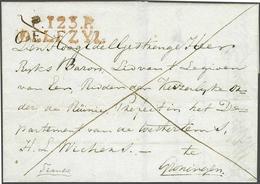 P.123.P.
DELFZYL
Den Hoog Edel Gestrenge Heer
Ryks Baron, Lid van t Legioen
van Eer, Ridder der Keizerlyke Or
der de Réunie, Prefect in het De
partement van de
H. L. Wichers
te
Groningen
Franco